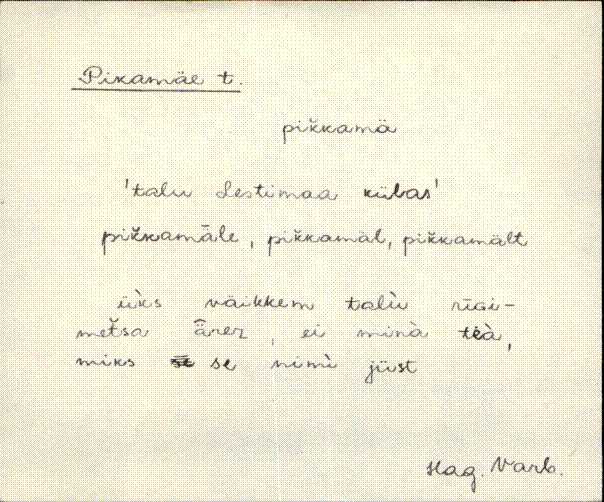 Pikamäe t.
pik̆kamä
'talu Lestimaa külas'
pik̆kamäle, pik̆kamäl, pik̆kamält
üks väikkem talù rīgi-
met̆sa ääreᴢ, ei minà teà,
miks se nimì jüst
Hag. Varb.